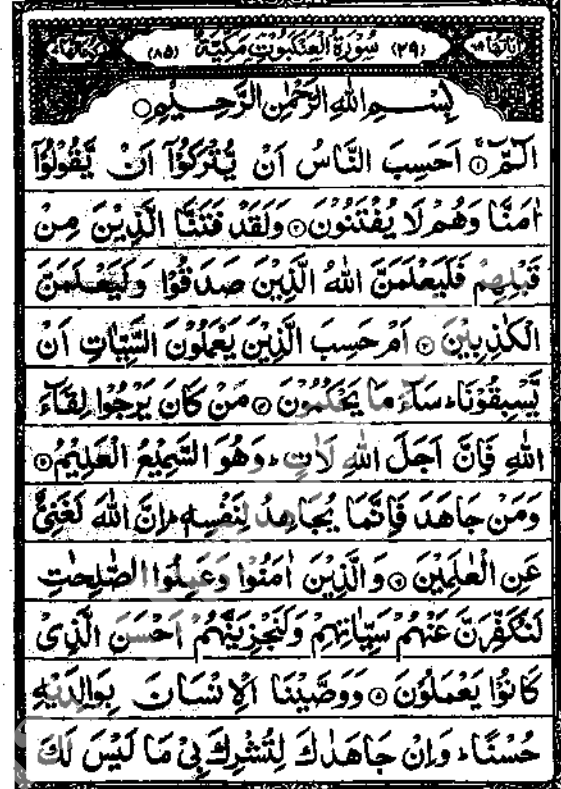 اٰیاتھا ٦٩ (٢٩) سُوْرَةُ الْعَنْكَبُوْتِ مَكِّيَّةٌ (٨٥)
بِسْمِ اللهِ الرَّحْمٰنِ الرَّحِيْمِ ○
الٓمّٓ ۚ‏﴿١﴾ اَحَسِبَ النَّاسُ اَنْ يُّتْرَكُوْۤا اَنْ يَّقُوْلُوْۤا
اٰمَنَّا وَهُمْ لَا يُفْتَنُوْنَ ﴿٢﴾ وَلَقَدْ فَتَنَّا الَّذِيْنَ مِنْ
قَبْلِهِمْ فَلَيَعْلَمَنَّ اللهُ الَّذِيْنَ صَدَقُوْا وَلَيَعْلَمَنَّ
الْكٰذِبِيْنَ ﴿٣﴾ اَمْ حَسِبَ الَّذِيْنَ يَعْمَلُوْنَ السَّيِّاٰتِ اَنْ
يَّسْبِقُوْنَا ؕ سَآءَ مَا يَحْكُمُوْنَ ﴿٤﴾ مَنْ كَانَ يَرْجُوْا لِقَآءَ
اللهِ فَاِنَّ اَجَلَ اللهِ لَاٰتٍ ؕ وَهُوَ السَّمِيْعُ الْعَلِيْمُ ﴿٥﴾
وَمَنْ جَاهَدَ فَاِنَّمَا يُجَاهِدُ لِنَفْسِهٖ ؕ اِنَّ اللهَ لَغَنِيٌّ
عَنِ الْعٰلَمِيْنَ ﴿٦﴾ وَالَّذِيْنَ اٰمَنُوْا وَعَمِلُوا الصّٰلِحٰتِ
لَنُكَفِّرَنَّ عَنْهُمْ سَيِّاٰتِهِمْ وَلَنَجْزِيَنَّهُمْ اَحْسَنَ الَّذِيْ
كَانُوْا يَعْمَلُوْنَ ﴿٧﴾ وَوَصَّيْنَا الْاِنْسَانَ بِوَالِدَيْهِ
حُسْنًا ؕ وَاِنْ جَاهَدٰكَ لِتُشْرِكَ بِيْ مَا لَيْسَ لَكَ